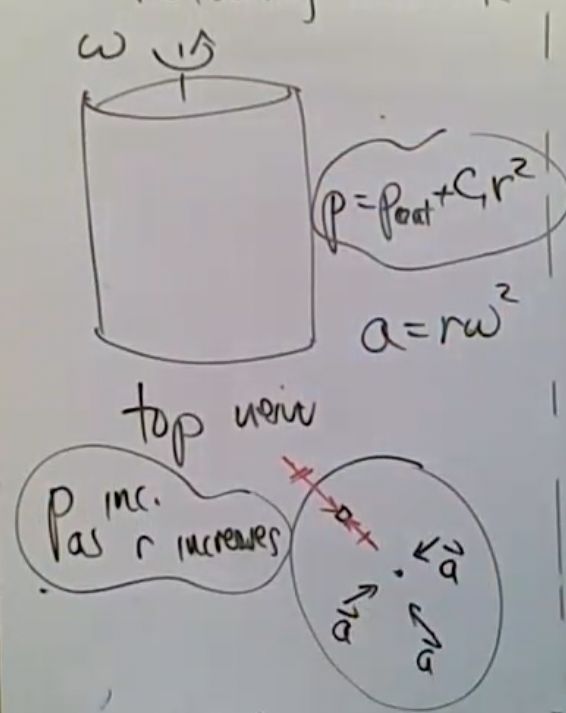 ω
p = p_{at} + C_1 r^2
a = rω^2
top veiw
P inc.
as r increases
\vec{a}
\vec{a}
\vec{a}